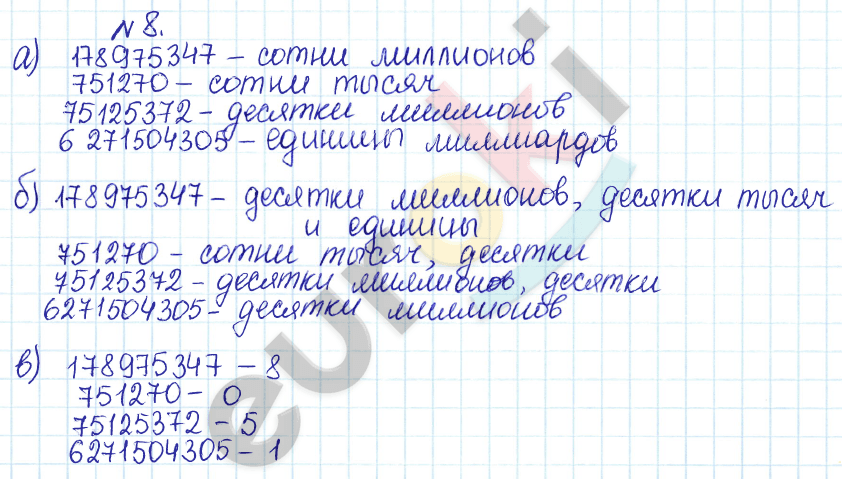 № 8.
а) 178975347 – сотни миллионов
751270 – сотни тысяч
75125372 – десятки миллионов
6 271504305 – единицы миллиардов
б) 178975347 – десятки миллионов, десятки тысяч
и единицы
751270 – сотни тысяч, десятки
75125372 – десятки миллионов, десятки
6271504305 – десятки миллионов
в) 178975347 – 8
751270 – 0
75125372 – 5
6271504305 – 1
euroki